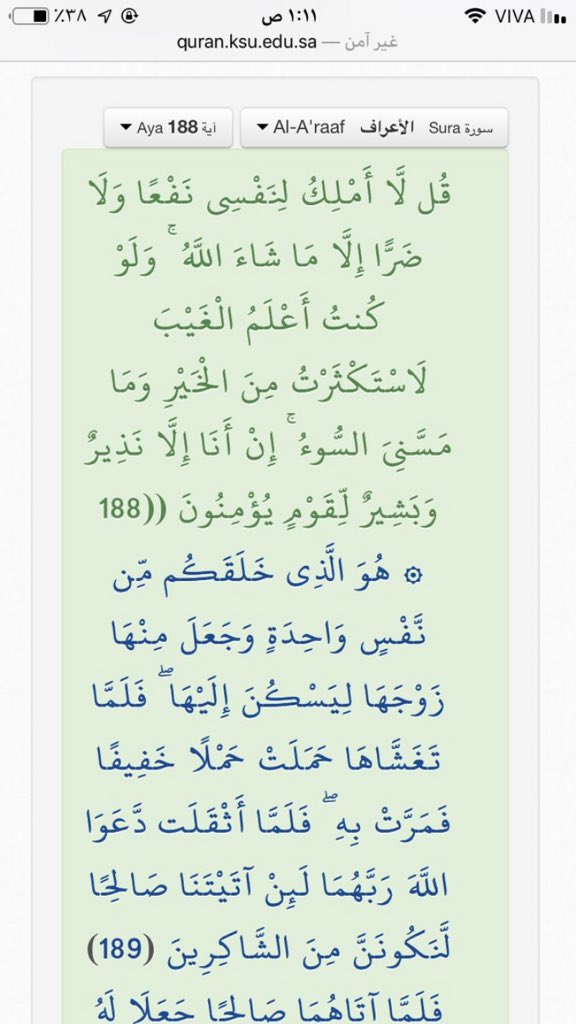 ٪٣٨ ١:١١ ص VIVA
غير آمن — quran.ksu.edu.sa
سورة Sura الأعراف Al-A'raaf آية Aya 188
قُل لَّا أَمْلِكُ لِنَفْسِى نَفْعًا وَلَا
ضَرًّا إِلَّا مَا شَاءَ اللَّهُ ۚ وَلَوْ
كُنتُ أَعْلَمُ الْغَيْبَ
لَاسْتَكْثَرْتُ مِنَ الْخَيْرِ وَمَا
مَسَّنِىَ السُّوءُ ۚ إِنْ أَنَا إِلَّا نَذِيرٌ
وَبَشِيرٌ لِّقَوْمٍ يُؤْمِنُونَ ((188
۞ هُوَ الَّذِى خَلَقَكُم مِّن
نَّفْسٍ وَاحِدَةٍ وَجَعَلَ مِنْهَا
زَوْجَهَا لِيَسْكُنَ إِلَيْهَا ۖ فَلَمَّا
تَغَشَّاهَا حَمَلَتْ حَمْلًا خَفِيفًا
فَمَرَّتْ بِهِ ۖ فَلَمَّا أَثْقَلَت دَّعَوَا
اللَّهَ رَبَّهُمَا لَئِنْ آتَيْتَنَا صَالِحًا
لَّنَكُونَنَّ مِنَ الشَّاكِرِينَ (189)
فَلَمَّا آتَاهُمَا صَالِحًا جَعَلَا لَهُ